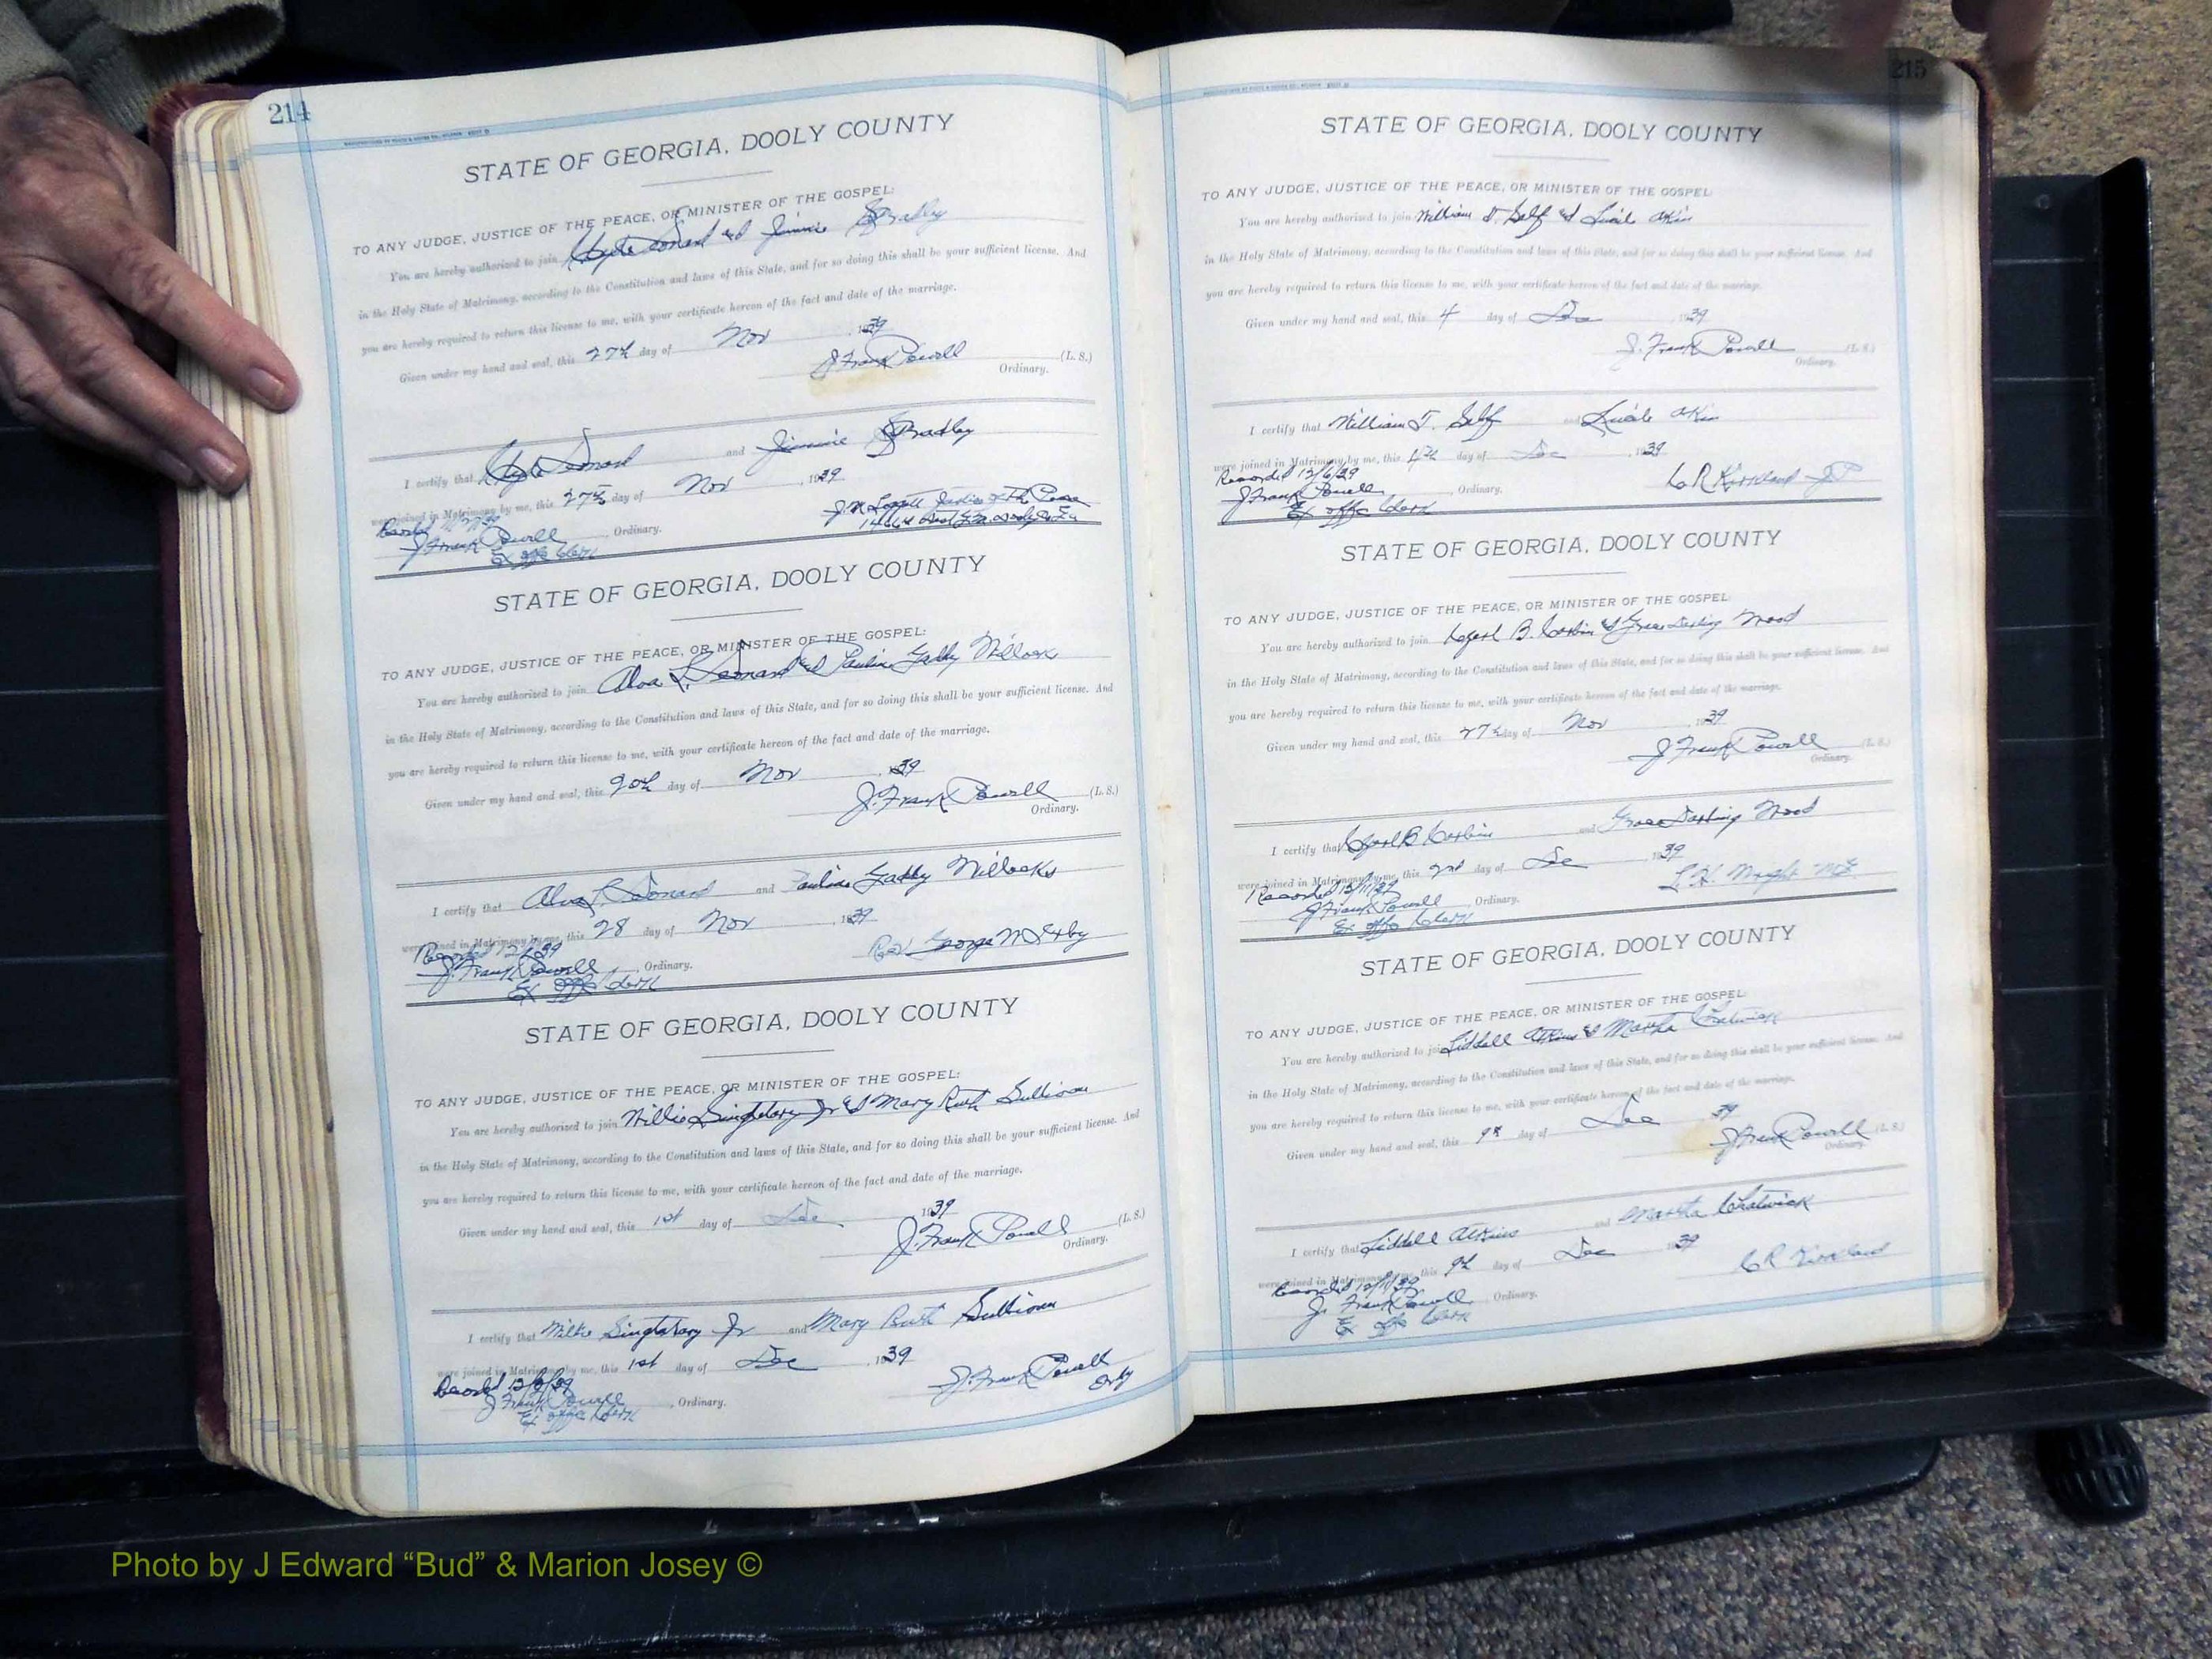 214
STATE OF GEORGIA, DOOLY COUNTY
TO ANY JUDGE, JUSTICE OF THE PEACE, OR MINISTER OF THE GOSPEL:
You are hereby authorized to join Clyde Leonard & Jimmie Bradley
in the Holy State of Matrimony, according to the Constitution and laws of this State, and for so doing this shall be your sufficient license. And
you are hereby required to return this license to me, with your certificate hereon of the fact and date of the marriage.
Given under my hand and seal, this 27th day of Nov , 1939
J Frank Powell (L. S.)
Ordinary.
I certify that Clyde Leonard and Jimmie Bradley
were joined in Matrimony by me, this 27th day of Nov , 1939
Recorded
J Frank Powell , Ordinary.
Ex offo Clerk
J. M. Justice of The Peace
STATE OF GEORGIA, DOOLY COUNTY
TO ANY JUDGE, JUSTICE OF THE PEACE, OR MINISTER OF THE GOSPEL:
You are hereby authorized to join Alva L. Leonard & Pauline Gadby Willocks
in the Holy State of Matrimony, according to the Constitution and laws of this State, and for so doing this shall be your sufficient license. And
you are hereby required to return this license to me, with your certificate hereon of the fact and date of the marriage.
Given under my hand and seal, this 20th day of Nov , 1939
J. Frank Powell (L. S.)
Ordinary.
I certify that Alva L. Leonard and Pauline Gadby Willocks
were joined in Matrimony by me, this 28 day of Nov , 1939
Rev George N
Recorded 12/6/39
J. Frank Powell , Ordinary.
Ex offo Clerk
STATE OF GEORGIA, DOOLY COUNTY
TO ANY JUDGE, JUSTICE OF THE PEACE, OR MINISTER OF THE GOSPEL:
You are hereby authorized to join Willie Singletary Jr & Mary Ruth Sullivan
in the Holy State of Matrimony, according to the Constitution and laws of this State, and for so doing this shall be your sufficient license. And
you are hereby required to return this license to me, with your certificate hereon of the fact and date of the marriage.
Given under my hand and seal, this 1st day of Dec 1939
J. Frank Powell (L. S.)
Ordinary.
I certify that Willie Singletary Jr and Mary Ruth Sullivan
were joined in Matrimony by me, this 1st day of Dec , 1939
J. Frank Powell
Ordy
Recorded
J Frank Powell , Ordinary.
Ex offo Clerk
215
STATE OF GEORGIA, DOOLY COUNTY
TO ANY JUDGE, JUSTICE OF THE PEACE, OR MINISTER OF THE GOSPEL:
You are hereby authorized to join William T. Self & Lucile Akin
in the Holy State of Matrimony, according to the Constitution and laws of this State, and for so doing this shall be your sufficient license. And
you are hereby required to return this license to me, with your certificate hereon of the fact and date of the marriage.
Given under my hand and seal, this 4 day of Dec , 1939
J. Frank Powell (L. S.)
Ordinary.
I certify that William T. Self and Lucile Akin
were joined in Matrimony by me, this 4th day of Dec , 1939
Recorded 12/6/39
J Frank Powell , Ordinary.
Ex offo Clerk
C R Kirkland J P
STATE OF GEORGIA, DOOLY COUNTY
TO ANY JUDGE, JUSTICE OF THE PEACE, OR MINISTER OF THE GOSPEL:
You are hereby authorized to join B. Corbin & Grace Darling Wood
in the Holy State of Matrimony, according to the Constitution and laws of this State, and for so doing this shall be your sufficient license. And
you are hereby required to return this license to me, with your certificate hereon of the fact and date of the marriage.
Given under my hand and seal, this 27th day of Nov 1939
J Frank Powell (L. S.)
Ordinary.
I certify that B Corbin and Grace Darling Wood
were joined in Matrimony by me, this 2nd day of Dec , 1939
L. H. Wright MG
Recorded 12/11/39
J Frank Powell , Ordinary.
Ex offo Clerk
STATE OF GEORGIA, DOOLY COUNTY
TO ANY JUDGE, JUSTICE OF THE PEACE, OR MINISTER OF THE GOSPEL:
You are hereby authorized to join Liddell Atkins & Martha Chatwick
in the Holy State of Matrimony, according to the Constitution and laws of this State, and for so doing this shall be your sufficient license. And
you are hereby required to return this license to me, with your certificate hereon of the fact and date of the marriage.
Given under my hand and seal, this 9th day of Dec 39
J Frank Powell (L. S.)
Ordinary.
I certify that Liddell Atkins and Martha Chatwick
were joined in Matrimony by me, this 9th day of Dec 1939
C R Kirkland
Recorded 12/11/39
J. Frank Powell , Ordinary.
Ex offo Clerk
Photo by J Edward “Bud” & Marion Josey ©